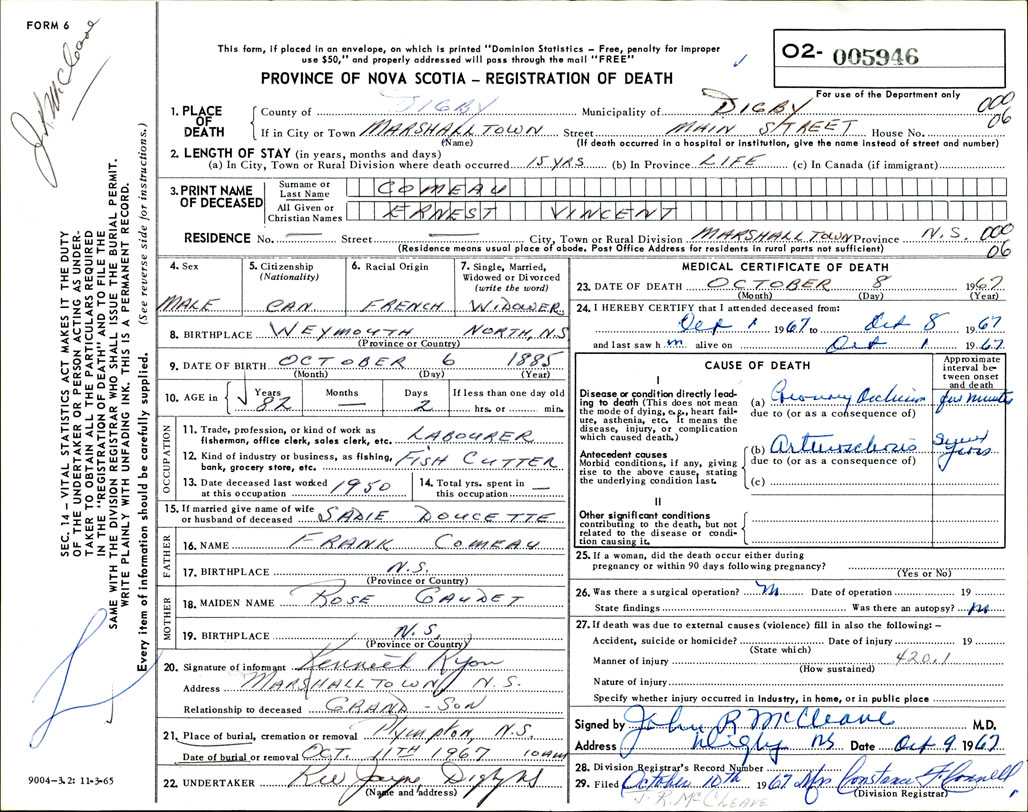 FORM 6
J. R. McCleave
This form, if placed in an envelope, on which is printed "Dominion Statistics – Free, penalty for improper
use $50," and properly addressed will pass through the mail "FREE"
PROVINCE OF NOVA SCOTIA – REGISTRATION OF DEATH
O2- 005946
For use of the Department only
000
06
1. PLACE OF DEATH
County of DIGBY Municipality of DIGBY
If in City or Town MARSHALLTOWN Street MAIN STREET House No.
(Name) (If death occurred in a hospital or institution, give the name instead of street and number)
2. LENGTH OF STAY (in years, months and days)
(a) In City, Town or Rural Division where death occurred 15 YRS (b) In Province LIFE (c) In Canada (if immigrant)
3. PRINT NAME OF DECEASED
Surname or Last Name COMEAU
All Given or Christian Names ERNEST VINCENT
RESIDENCE No. — Street — City, Town or Rural Division MARSHALLTOWN Province N.S. 000
06
(Residence means usual place of abode. Post Office Address for residents in rural parts not sufficient)
4. Sex
MALE
5. Citizenship
(Nationality)
CAN.
6. Racial Origin
FRENCH
7. Single, Married,
Widowed or Divorced
(write the word)
WIDOWER
8. BIRTHPLACE WEYMOUTH NORTH, N.S
(Province or Country)
9. DATE OF BIRTH OCTOBER 6 1885
(Month) (Day) (Year)
10. AGE in
Years
82
Months
—
Days
2
If less than one day old
hrs. or min.
OCCUPATION
11. Trade, profession, or kind of work as
fisherman, office clerk, sales clerk, etc. LABOURER
12. Kind of industry or business, as fishing,
bank, grocery store, etc. FISH CUTTER
13. Date deceased last worked
at this occupation 1950
14. Total yrs. spent in
this occupation —
15. If married give name of wife
or husband of deceased SADIE DOUCETTE
FATHER
16. NAME FRANK COMEAU
17. BIRTHPLACE N.S.
(Province or Country)
MOTHER
18. MAIDEN NAME ROSE GAUDET
19. BIRTHPLACE N.S.
(Province or Country)
20. Signature of informant Kenneth Ryan
Address MARSHALLTOWN N.S.
Relationship to deceased GRAND-SON
21. Place of burial, cremation or removal Plympton, N.S.
Date of burial or removal OCT. 11TH 1967 10AM
22. UNDERTAKER Digby NS
(Name and address)
MEDICAL CERTIFICATE OF DEATH
23. DATE OF DEATH OCTOBER 8 1967
(Month) (Day) (Year)
24. I HEREBY CERTIFY that I attended deceased from:
1 1967 to Oct 8 1967
and last saw h m alive on Oct 1 1967
CAUSE OF DEATH
Approximate
interval be-
tween onset
and death
I
Disease or condition directly lead-
ing to death (This does not mean
the mode of dying, e.g., heart fail-
ure, asthenia, etc. It means the
disease, injury, or complication
which caused death.)
(a) Coronary Occlusion few minutes
due to (or as a consequence of)
Antecedent causes
Morbid conditions, if any, giving
rise to the above cause, stating
the underlying condition last.
(b) Arteriosclerosis years
due to (or as a consequence of)
(c)
II
Other significant conditions
contributing to the death, but not
related to the disease or condi-
tion causing it.
25. If a woman, did the death occur either during
pregnancy or within 90 days following pregnancy?
(Yes or No)
26. Was there a surgical operation? No Date of operation 19
State findings Was there an autopsy? No
27. If death was due to external causes (violence) fill in also the following: –
Accident, suicide or homicide? Date of injury 19
(State which)
Manner of injury 420.1
(How sustained)
Nature of injury
Specify whether injury occurred in Industry, in home, or in public place
Signed by John R McCleave M.D.
Address Digby NS Date Oct 9 1967
28. Division Registrar's Record Number
29. Filed October 10th 1967 Mrs Constance F. Connell
(Division Registrar)
J. R. McCLEAVE
SEC. 14 – VITAL STATISTICS ACT MAKES IT THE DUTY
OF THE UNDERTAKER OR PERSON ACTING AS UNDER-
TAKER TO OBTAIN ALL THE PARTICULARS REQUIRED
IN THE "REGISTRATION OF DEATH" AND TO FILE THE
SAME WITH THE DIVISION REGISTRAR WHO SHALL ISSUE THE BURIAL PERMIT.
WRITE PLAINLY WITH UNFADING INK. THIS IS A PERMANENT RECORD.
Every item of information should be carefully supplied. (See reverse side for instructions.)
9004-3.2: 11-3-65